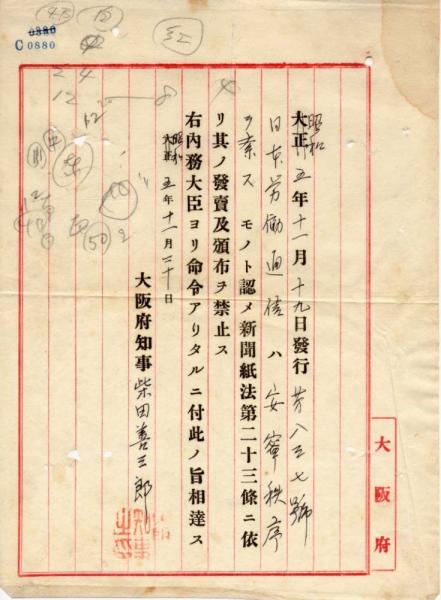 0880
C 0880
大正昭和五年十一月十九日發行 第八五七號
日本労働通信 ハ 安寧秩序
ヲ紊ス モノト認メ新聞紙法第二十三條ニ依
リ其ノ發賣及頒布ヲ禁止ス
右內務大臣ヨリ命令アリタルニ付此ノ旨相達ス
大正昭和五年十一月二十日
大阪府知事 柴田善三郎
大阪府
24
12
8
12
50
2